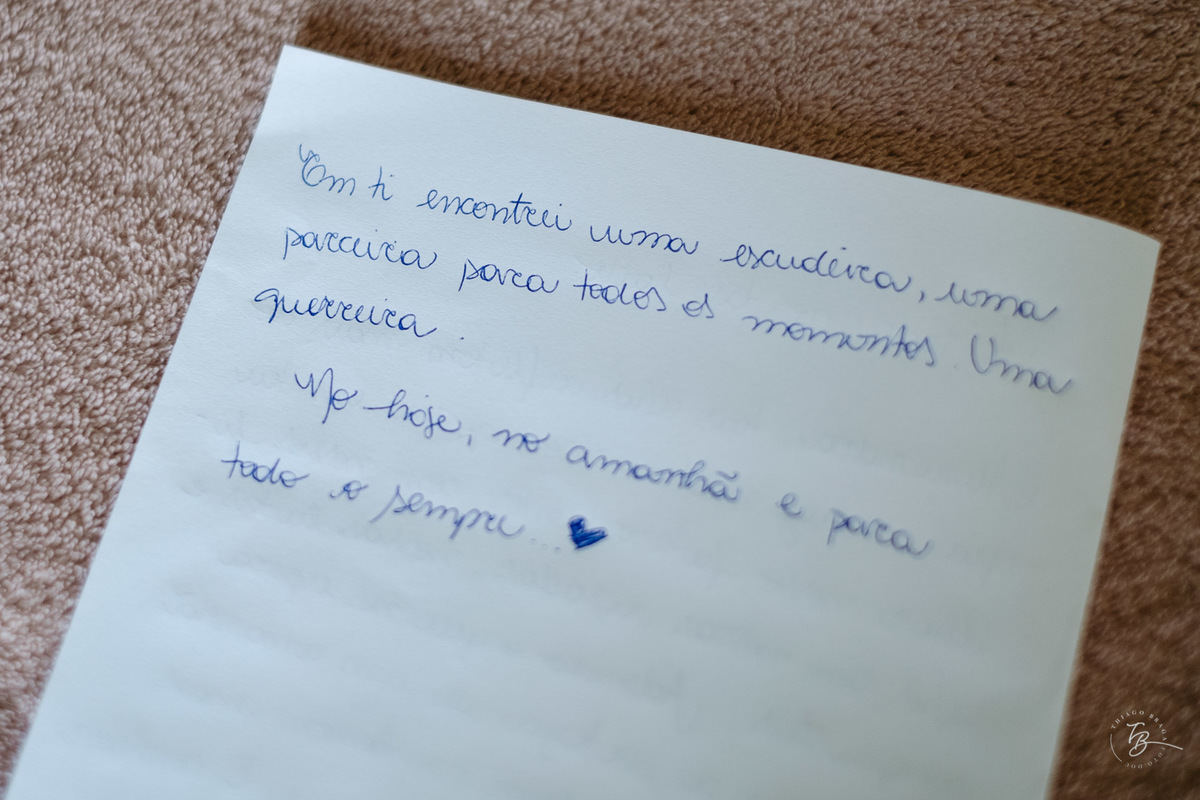 Em ti encontrei uma escudeira, uma
parceira para todos os momentos. Uma
guerreira.
No hoje, no amanhã e para
todo o sempre... ♥
THIAGO BRAGA FOTO.DOC
TB